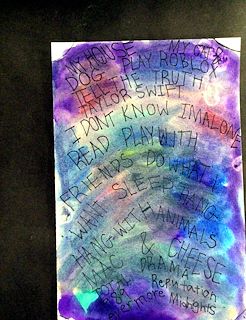 MY HOUSE MY CAT
DOG PLAY ROBLOX
TELL THE TRUTH
TAYLOR SWIFT
I DONT KNOW IM ALONE
READ PLAY WITH
FRIENDS DO WHAT I
WANT SLEEP SING
HANG WITH ANIMALS
MAC & CHEESE
DRAMA
Reputation
evermore Midnights